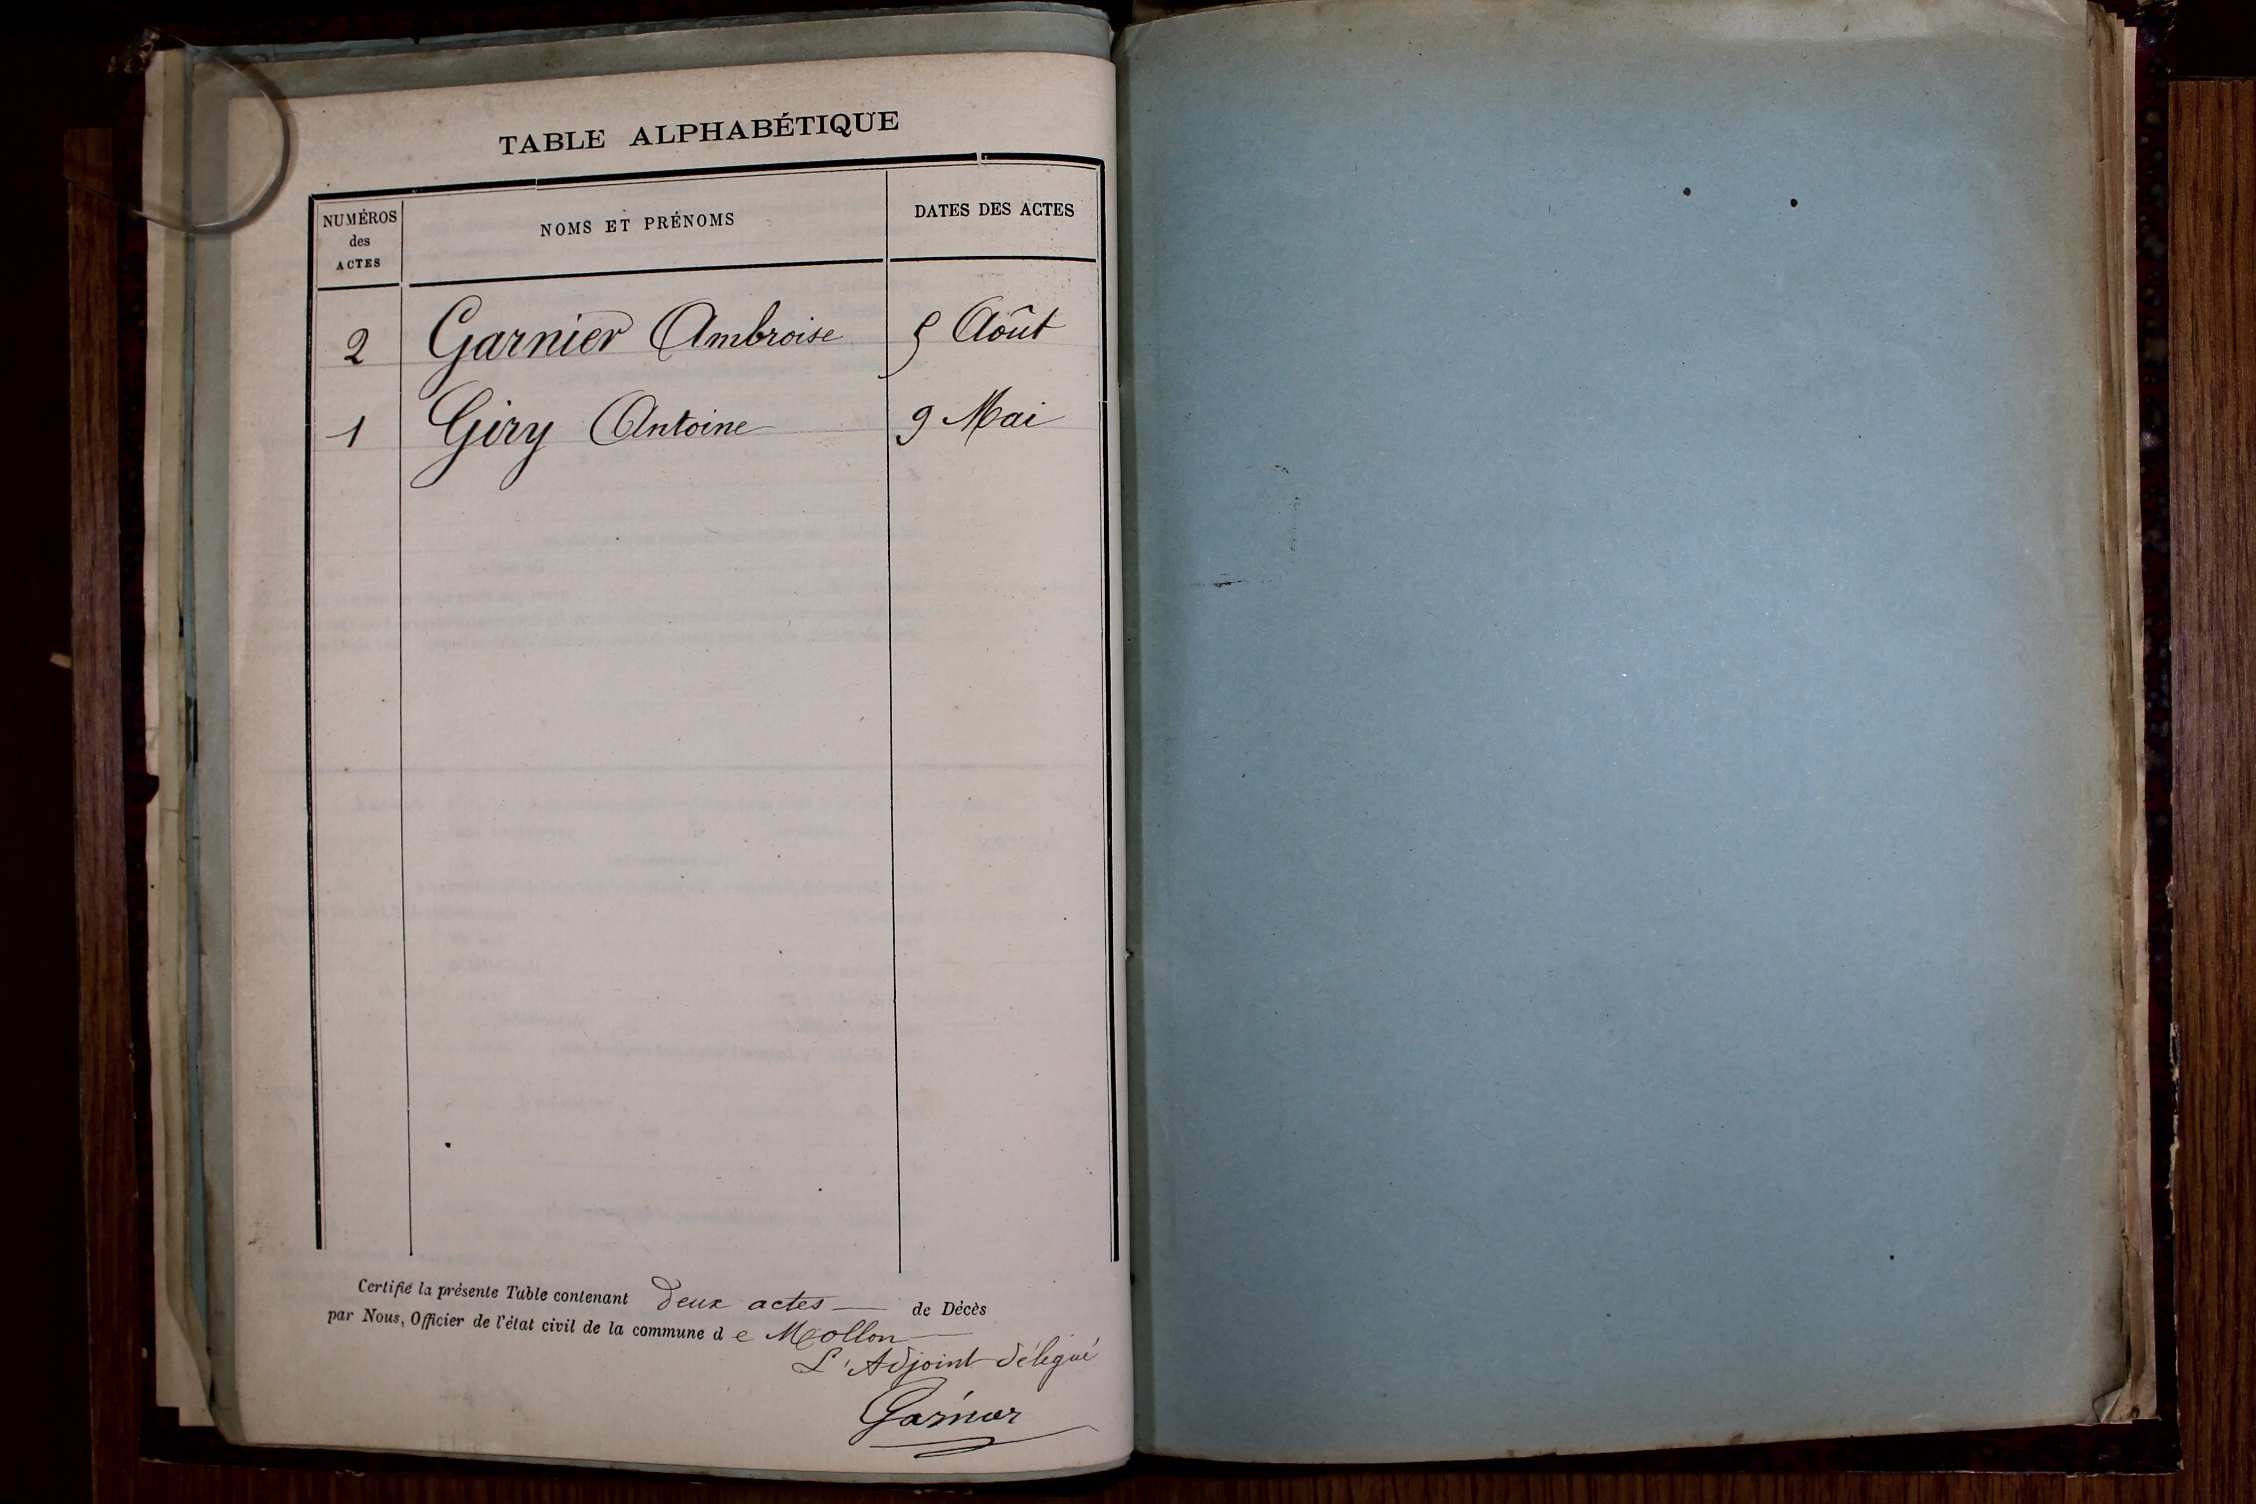 TABLE ALPHABÉTIQUE
NUMÉROS des ACTES NOMS ET PRÉNOMS DATES DES ACTES
2 Garnier Ambroise 5 Août
1 Giry Antoine 9 Mai
Certifié la présente Table contenant deux actes — de Décès
par Nous, Officier de l'état civil de la commune de Mollon —
L'Adjoint délégué
Garnier